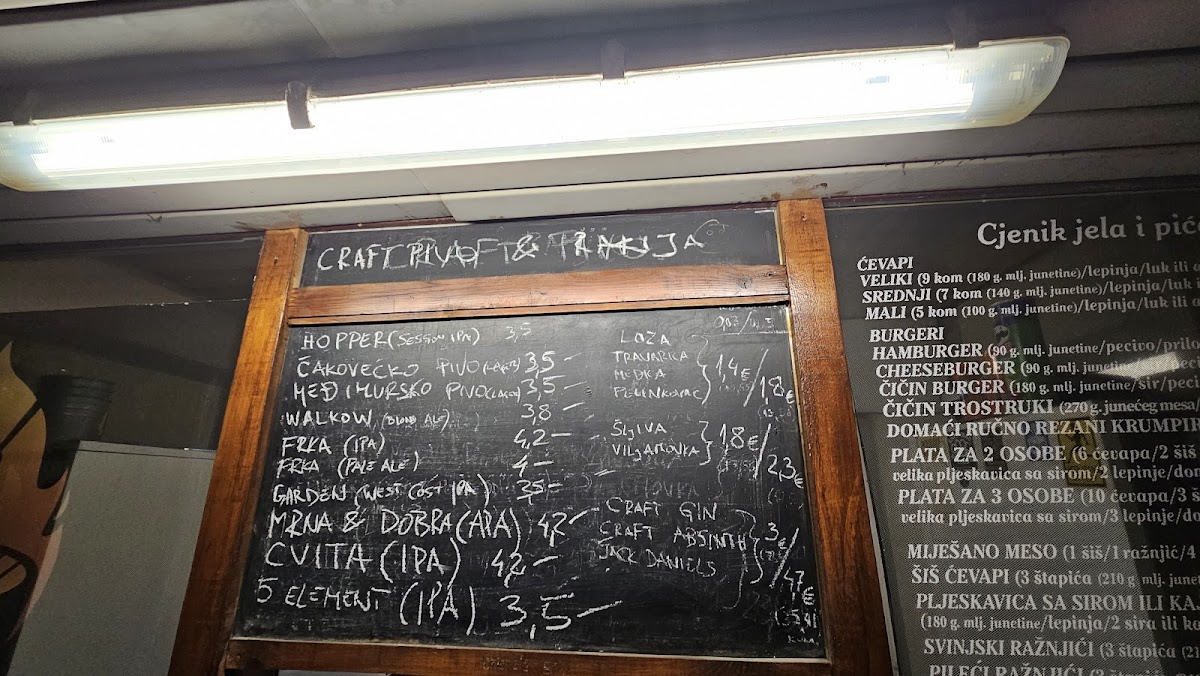 CRAFT PIVO & RAKIJA
HOPPER (SESSION IPA) 3,5
ČAKOVEČKO PIVO (LAGER) 3,5 —
MEĐIMURSKO PIVO (LAGER) 3,5 —
WALKOW (BLOND ALE) 3,8 —
FRKA (IPA) 4,2 —
FRKA (PALE ALE) 4 —
GARDEN (WEST COST IPA) 3,5 —
MRNA & DOBRA (APA) 4,2 —
CVITA (IPA) 4,2 —
5 ELEMENT (IPA) 3,5 —
LOZA
TRAVARICA
MEDKA
PELINKOVAC
1,4€/1,8€
ŠLJIVA
VILJAMOVKA
1,8€/2,3€
CRAFT GIN
CRAFT ABSINTH
JACK DANIELS
3€/4,7€
Cjenik jela i pića
ĆEVAPI
VELIKI (9 kom (180 g. mlj. junetine)/lepinja/luk ili
SREDNJI (7 kom (140 g. mlj. junetine)/lepinja/luk
MALI (5 kom (100 g. mlj. junetine)/lepinja/luk ili
BURGERI
HAMBURGER (90 g. mlj. junetine/pecivo/prilo
CHEESEBURGER (90 g. mlj. junetine/
ČIČIN BURGER (180 g. mlj. junetine/sir/peci
ČIČIN TROSTRUKI (270 g. junećeg mesa/
DOMAĆI RUČNO REZANI KRUMPIR
PLATA ZA 2 OSOBE (6 ćevapa/2 šiš
velika pljeskavica sa sirom/2 lepinje/do
PLATA ZA 3 OSOBE (10 ćevapa/3 š
velika pljeskavica sa sirom/3 lepinje/do
MIJEŠANO MESO (1 šiš/1 ražnjić/4
ŠIŠ ĆEVAPI (3 štapića (210 g. mlj. junet
PLJESKAVICA SA SIROM ILI KA
(180 g. mlj. junetine/lepinja/2 sira ili ka
SVINJSKI RAŽNJIĆI (3 štapića (21
PILEĆI RAŽNJIĆI (3 štapića